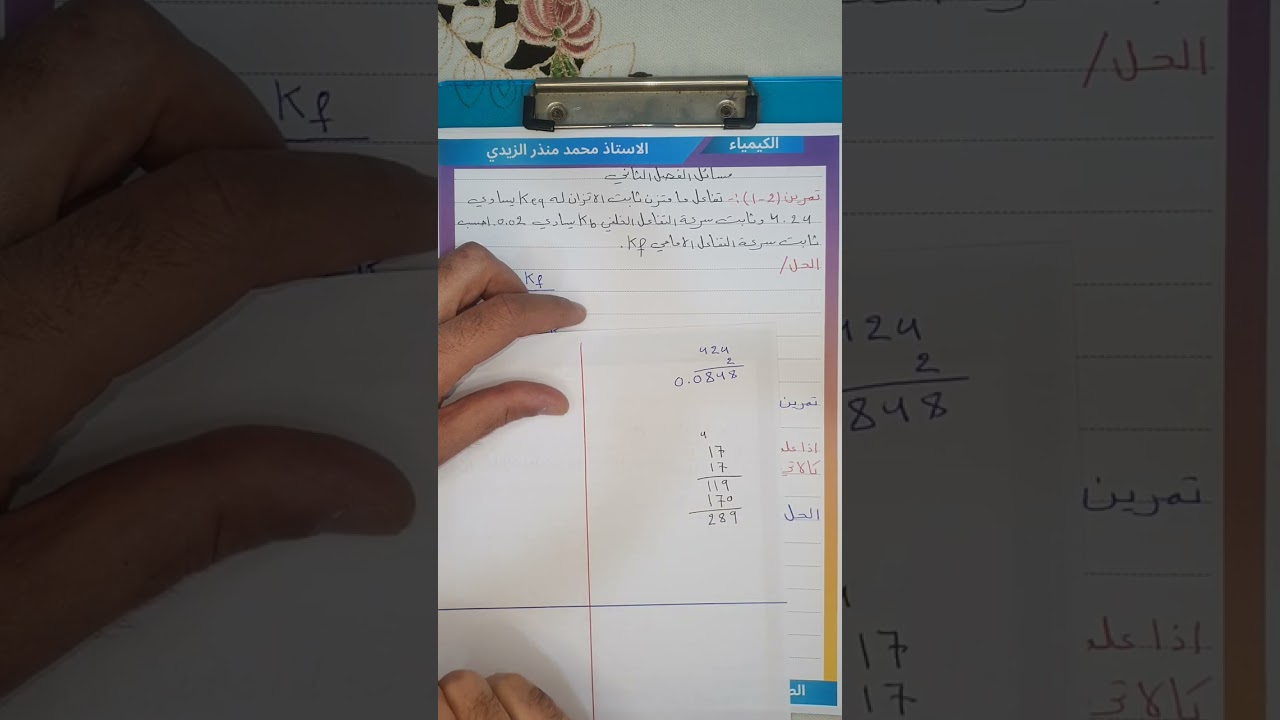 الكيمياء
الاستاذ محمد منذر الزيدي
مسائل الفصل الثاني
تمرين (2-1):- تفاعل ما متزن ثابت الاتزان له Keq يساوي
4.24 وثابت سرعة التفاعل الخلفي Kb يساوي 0.02. احسب
ثابت سرعة التفاعل الامامي Kf.
الحل/
Kf
424
2
0.0848
تمرين
4
17
17
119
170
289
اذا علمـ
كالاتي
الحل
الحل/
Kf
424
2
848
تمرين
17
17
اذا علمـ
كالاتي